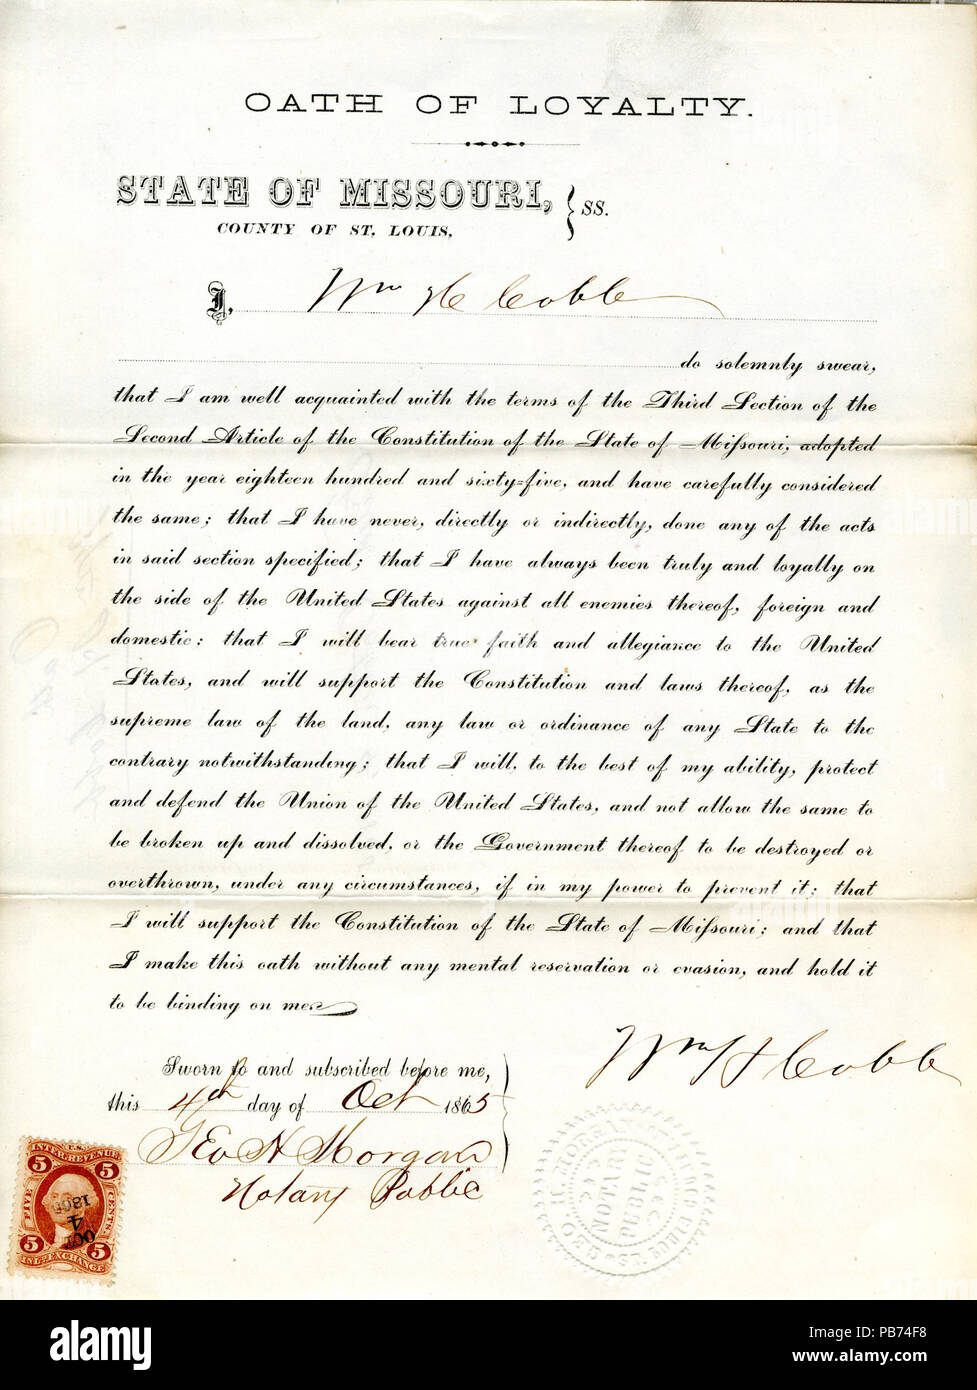 OATH OF LOYALTY.
STATE OF MISSOURI, } SS.
COUNTY OF ST. LOUIS,
I, Wm H Cobb
do solemnly swear,
that I am well acquainted with the terms of the Third Section of the
Second Article of the Constitution of the State of Missouri, adopted
in the year eighteen hundred and sixty-five, and have carefully considered
the same; that I have never, directly or indirectly, done any of the acts
in said section specified; that I have always been truly and loyally on
the side of the United States against all enemies thereof, foreign and
domestic; that I will bear true faith and allegiance to the United
States, and will support the Constitution and laws thereof, as the
supreme law of the land, any law or ordinance of any State to the
contrary notwithstanding; that I will, to the best of my ability, protect
and defend the Union of the United States, and not allow the same to
be broken up and dissolved, or the Government thereof to be destroyed or
overthrown, under any circumstances, if in my power to prevent it; that
I will support the Constitution of the State of Missouri; and that
I make this oath without any mental reservation or evasion, and hold it
to be binding on me.
Wm H Cobb
Sworn to and subscribed before me,
this 4th day of Oct 1865
Geo H Morgan
Notary Public
5 U.S. 5
INTER. REVENUE
FIVE CENTS
OCT 4 1865
5 5
INL. EXCHANGE
GEO. H. MORGAN
NOTARY
PUBLIC
ST. LOUIS
alamy
Image ID: PB74F8
www.alamy.com